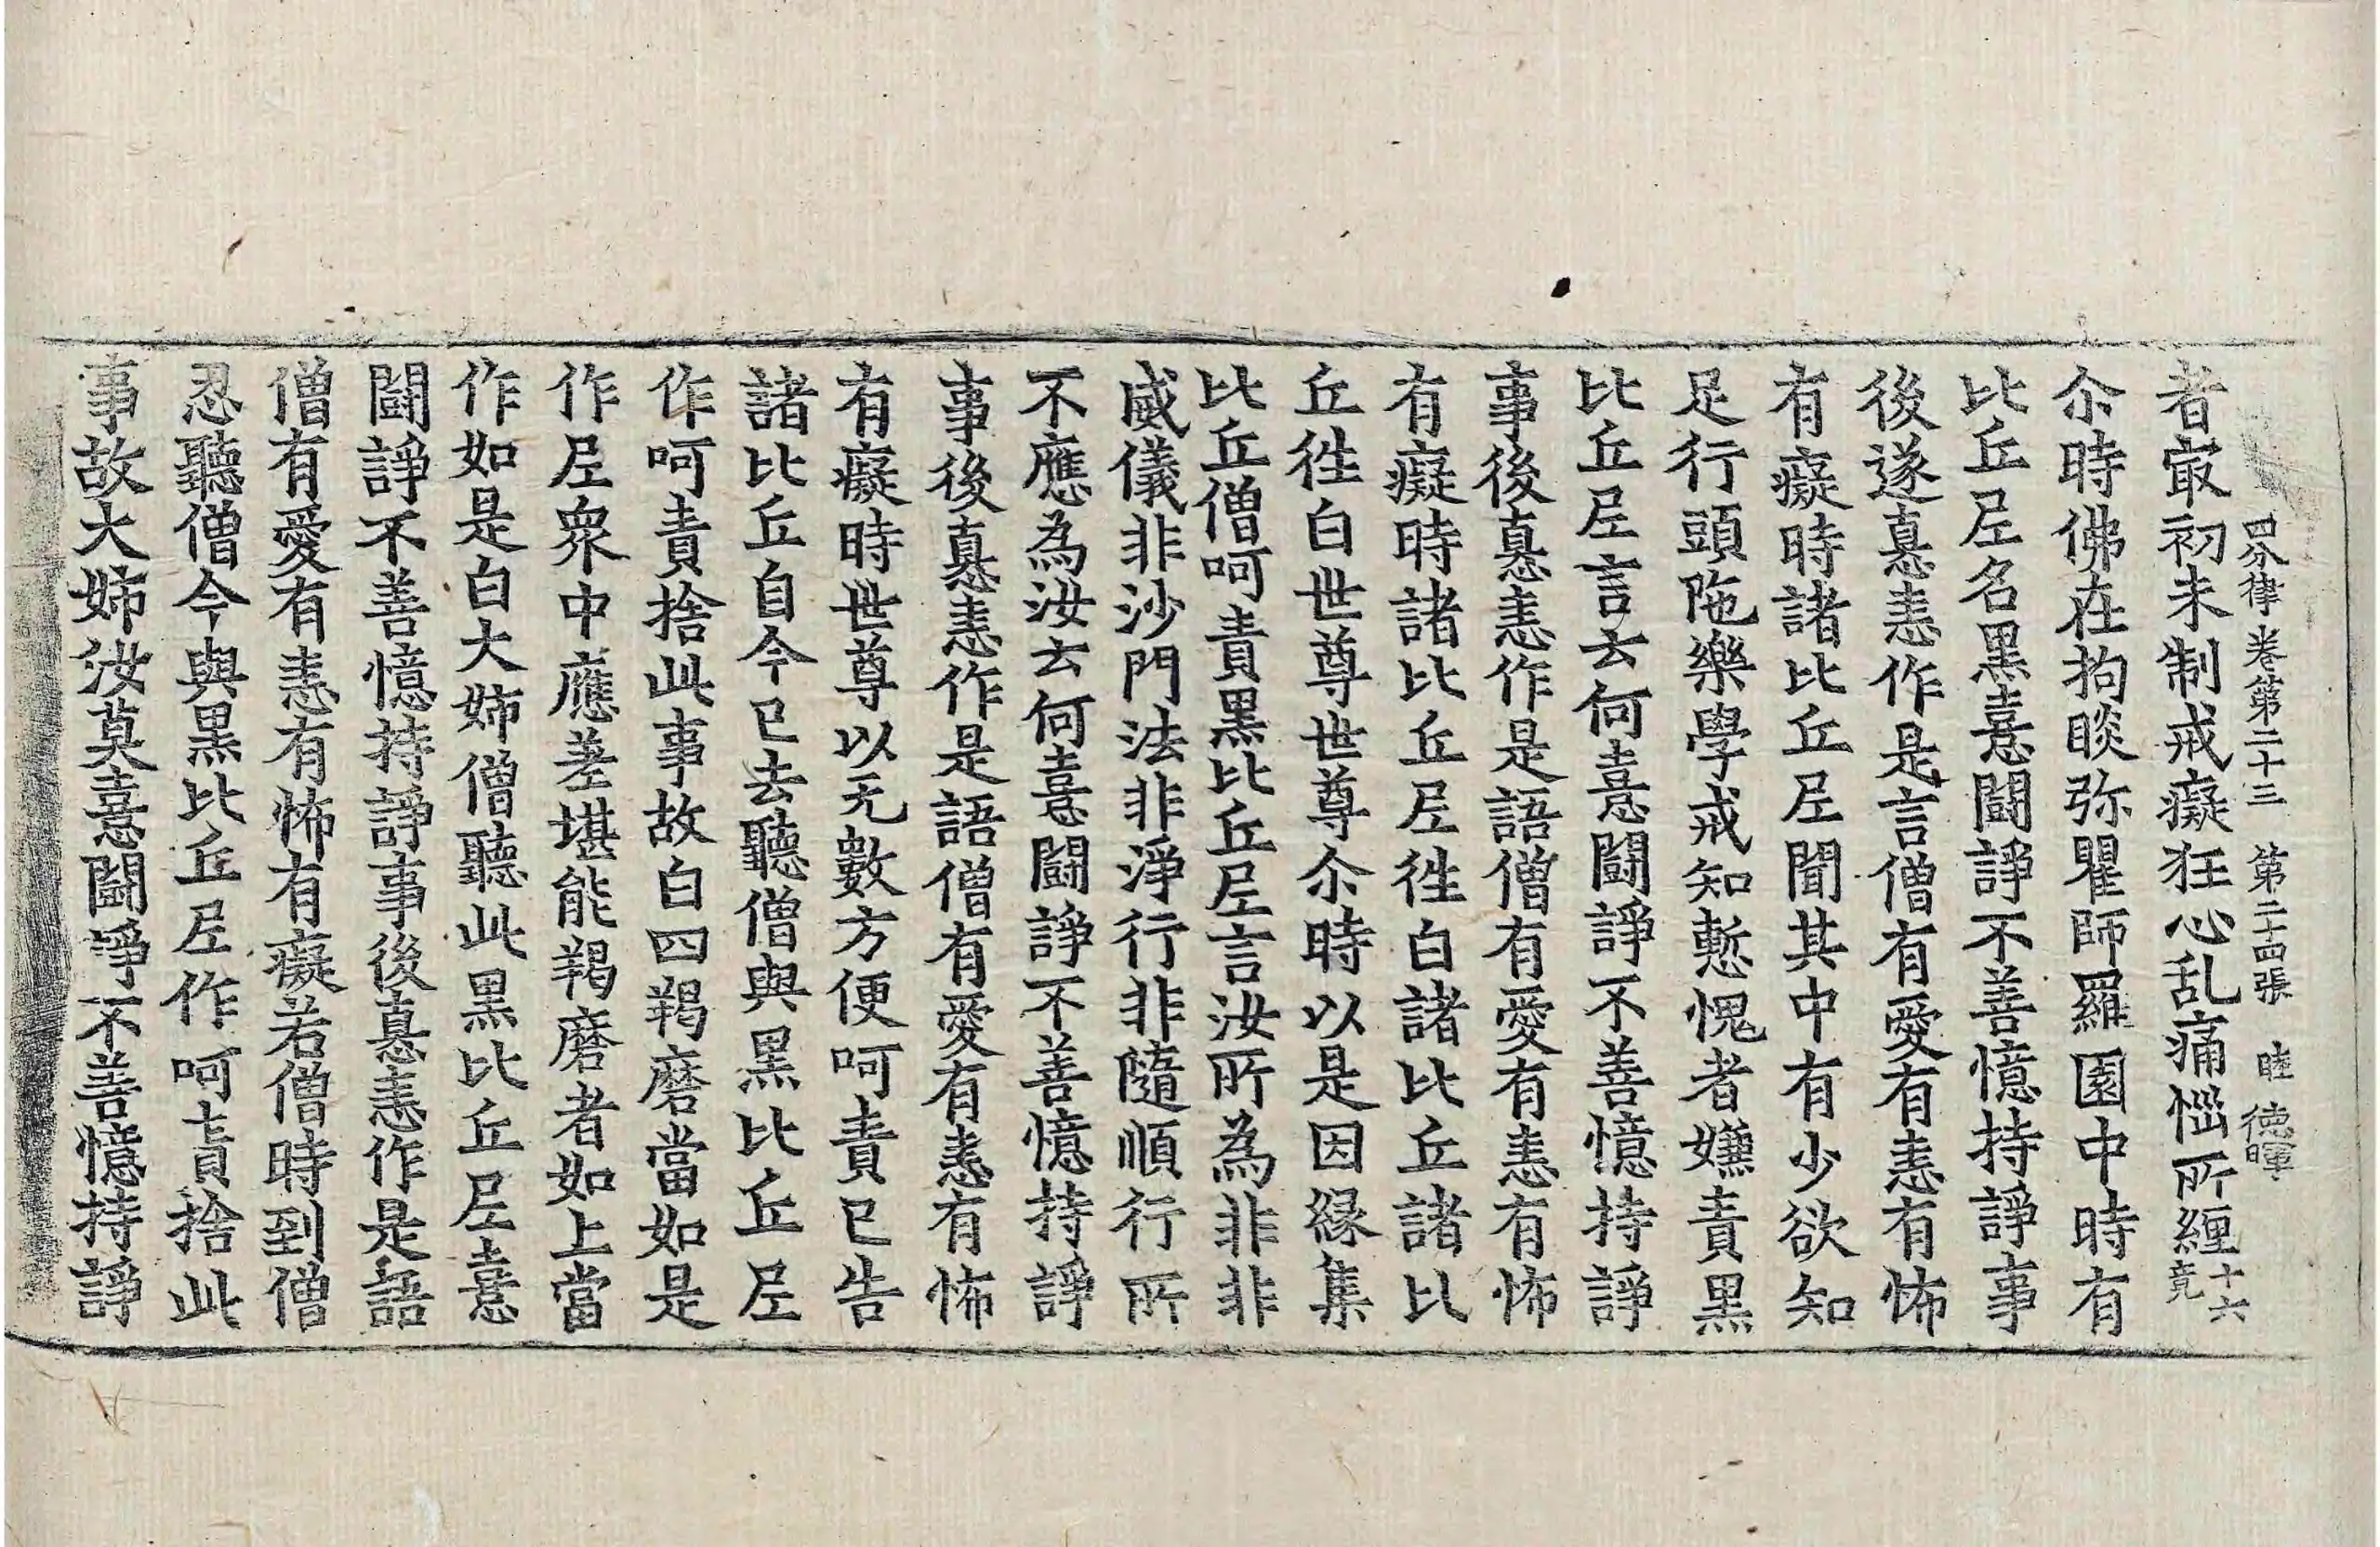 四分律卷第二十三 第二十四張 睦 德暉
者冣初未制戒癡狂心乱痛惱所纒十六竟
尒時佛在拘睒弥瞿師羅園中時有
比丘尼名黑憙鬪諍不善憶持諍事
後遂恚恚作是言僧有愛有恚有怖
有癡時諸比丘尼聞其中有少欲知
足行頭陁樂學戒知慙愧者嫌責黑
比丘尼言云何憙鬪諍不善憶持諍
事後恚恚作是語僧有愛有恚有怖
有癡時諸比丘尼徃白諸比丘諸比
丘徃白世尊世尊尒時以是因緣集
比丘僧呵責黑比丘尼言汝所為非非
威儀非沙門法非淨行非隨順行所
不應為汝云何憙鬪諍不善憶持諍
事後恚恚作是語僧有愛有恚有怖
有癡時世尊以无數方便呵責已告
諸比丘自今已去聽僧與黑比丘尼
作呵責捨此事故白四羯磨當如是
作尼衆中應差堪能羯磨者如上當
作如是白大姉僧聽此黑比丘尼憙
鬪諍不善憶持諍事後恚恚作是語
僧有愛有恚有怖有癡若僧時到僧
忍聽僧今與黑比丘尼作呵責捨此
事故大姉汝莫憙鬪諍不善憶持諍